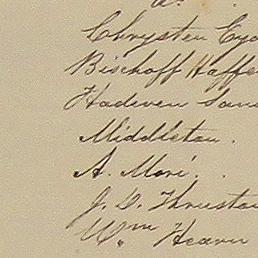 Chrysten Eyd
Bischoff Haffe
Hadwen Sand
Middleton.
A. Moré.
J. D. Thruston
Wm Hearn